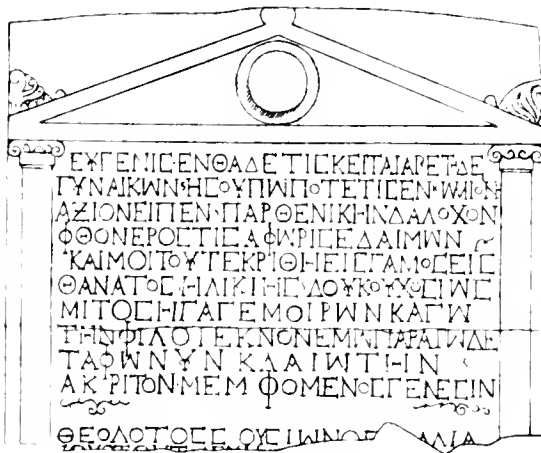 ΕΥΓΕΝΙϹ·ΕΝΘΑΔΕΤΙϹΚΕΙΤΑΙΑΡΕΤ·ΔΕ
ΓΥΝΑΙΚΩΝ·ΗϹΟΥΠΩΠΟΤΕΤΙϹΕΝ·ΩΜΙΟΝ
ΑΞΙΟΝΕΙΠΕΝ·ΠΑΡΘΕΝΙΚΗΝΔΑΛΟΧΟΝ
ΦΘΟΝΕΡΟϹΤΙϹΑΦΩΡΙϹΕΔΑΙΜΩΝ
ΚΑΙΜΟΙΤΟΥΤΕΚΡΙΘΗΕΙϹΓΑΜΟϹΕΙϹ
ΘΑΝΑΤΟϹ·ΗΛΙΚΙΗϹΔΟΥΚΟΥΧΟϹΙΩϹ
ΜΙΤΟϹΗΓΑΓΕΜΟΙΡΩΝΚΑΓΩ
ΤΗΝΦΙΛΟΤΕΚΝΟΝΕΜΩΠΑΡΑΓΩΔΕ
ΤΑΦΩΝΥΝΚΛΑΙΩΤΗΝ
ΑΚΡΙΤΟΝ·ΜΕΜΦΟΜΕΝΟϹΓΕΝΕϹΙΝ
ΘΕΟΔΟΤΟϹϹΟΥϹΙΩΝ